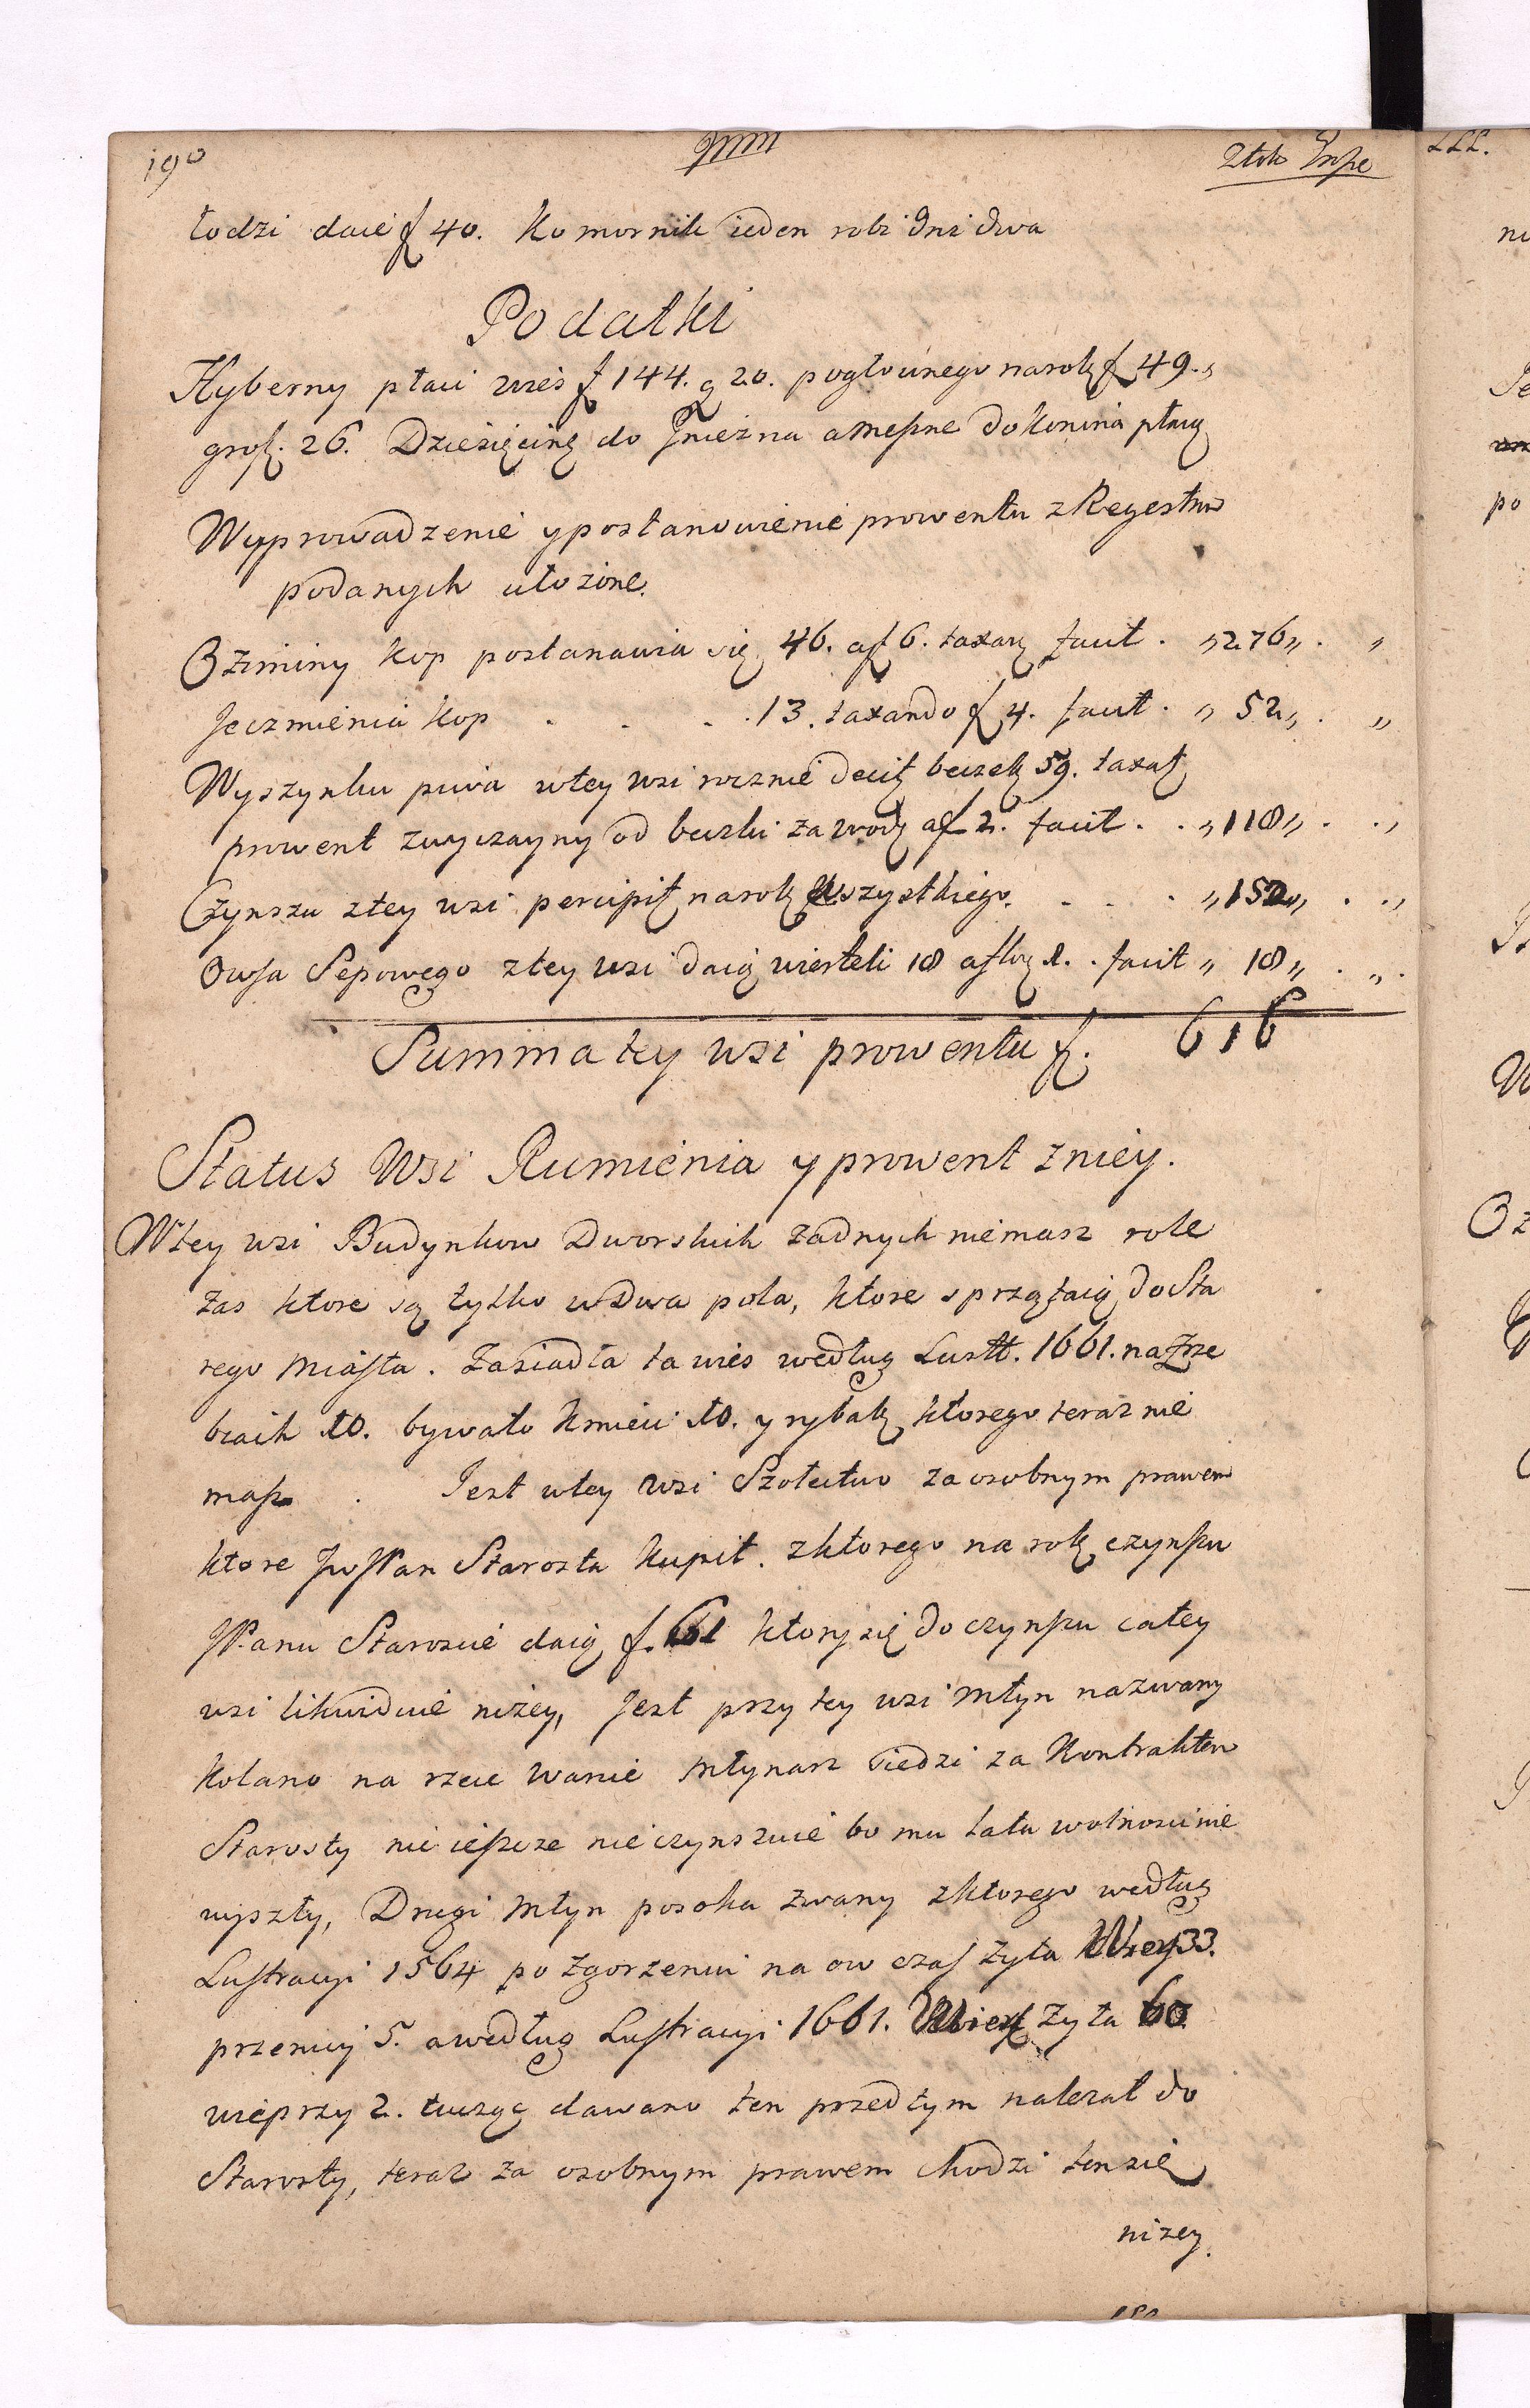 190
Złote Grosze
łodzi daie f 40. Komornik ieden robi dni dwa
Podatki
Hyberny płaci wies f 144. g 20. pogłownego na rok f 49.
gros. 26. Dziesięcinę do Gniezna a Meszne do Konina płacą
Wyprowadzenie y postanowienie prowentu z Regestrów
podanych ułożone.
Oziminy kop postanawia się 46. a f 6. taxaę facit . „276„ . „
Jęczmienia kop . . . . 13. taxando f 4. facit . „ 52„ . „
Wyszynku piwa w tey wsi rocznie beczek 59. taxaę
prowent zwyczayny od beczki za wodę a f 2. facit . . „118„ . . „
Czynszu z tey wsi percipit na rok wszystkiego. . . . „152„ . . „
Owsa Sepowego z tey wsi daią wierteli 18 a flor 1. . facit „ 18„ . „ .
Summa tey wsi prowentu f. 616
Status Wsi Rumienia y prowent z niey.
W tey wsi Budynkow Dworskich zadnych niemasz role
zas ktore są tylko w Dwa pola, ktore sprzątaią do Sta
rego Miasta. Zasiadła ta wies według Lustr. 1661. na Zrze
biach 10. bywało Kmieci 10. y rybak ktorego teraz nie
masz . Jest w tey wsi Szołectwo za osobnym prawem
ktore JWPan Starosta kupił. z ktorego na rok czynszu
JPanu Staroscie daią f. 61 ktory się do czynszu całey
wsi likwiduie niżey, Jest przy tey wsi Młyn nazwany
Kolano na rzece Warcie Młynarz siedzi za Kontraktem
Starosty nic ieszcze nie czynszuie bo mu lata wolności nie
wyszły, Drugi Młyn posoka zwany z ktorego według
Lustracyi 1564 po zgorzeniu na ow czas żyta Wier 33.
przenicy 5. a według Lustracyi 1661. Wiert żyta 60
wieprzy 2. tucząc dawano ten przedtym należał do
Starosty, teraz za osobnym prawem chodzi ten się
niżey.